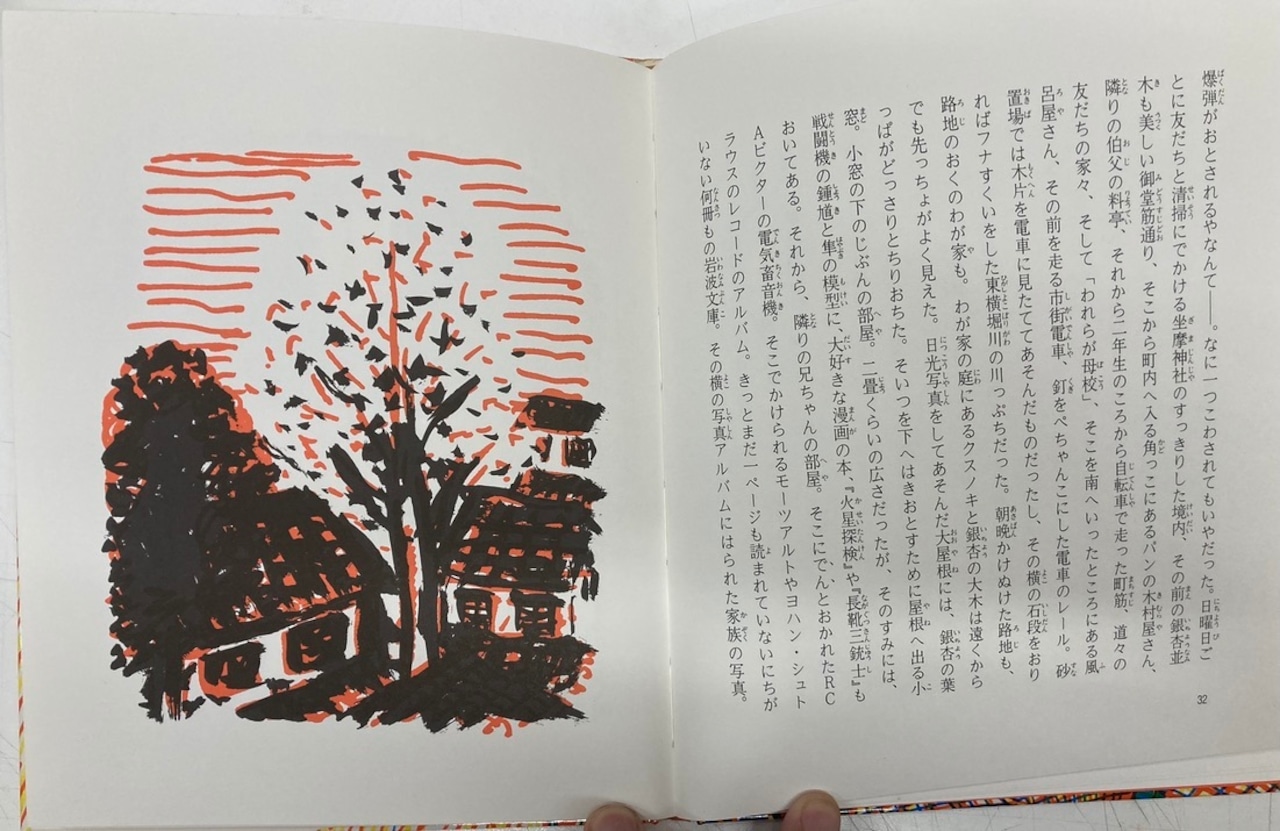 爆弾がおとされるやなんて――。なに一つこわされてもいやだった。日曜日ご
とに友だちと清掃にでかける坐摩神社のすっきりした境内、その前の銀杏並
木も美しい御堂筋通り、そこから町内へ入る角っこにあるパンの木村屋さん、
隣りの伯父の料亭、それから二年生のころから自転車で走った町筋、道々の
友だちの家々、そして「われらが母校」、そこを南へいったところにある風
呂屋さん、その前を走る市街電車、釘をぺちゃんこにした電車のレール。砂
置場では木片を電車に見たててあそんだものだったし、その横の石段をおり
ればフナすくいをした東横堀川の川っぷちだった。朝晩かけぬけた路地も、
路地のおくのわが家も。わが家の庭にあるクスノキと銀杏の大木は遠くから
でも先っちょがよく見えた。日光写真をしてあそんだ大屋根には、銀杏の葉
っぱがどっさりとちりおちた。そいつを下へはきおとすために屋根へ出る小
窓。小窓の下のじぶんの部屋。二畳くらいの広さだったが、そのすみには、
戦闘機の鍾馗と隼の模型に、大好きな漫画の本、『火星探検』や『長靴三銃士』も
おいてある。それから、隣りの兄ちゃんの部屋。そこにでんとおかれたRC
Aビクターの電気畜音機。そこでかけられるモーツアルトやヨハン・シュト
ラウスのレコードのアルバム。きっとまだ一ページも読まれていないにちが
いない何冊もの岩波文庫。その横の写真アルバムにはられた家族の写真。
32